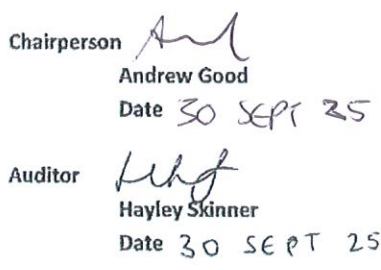 Chairperson
Andrew Good
Date 30 SEPT 25
Auditor
Hayley Skinner
Date 30 SEPT 25